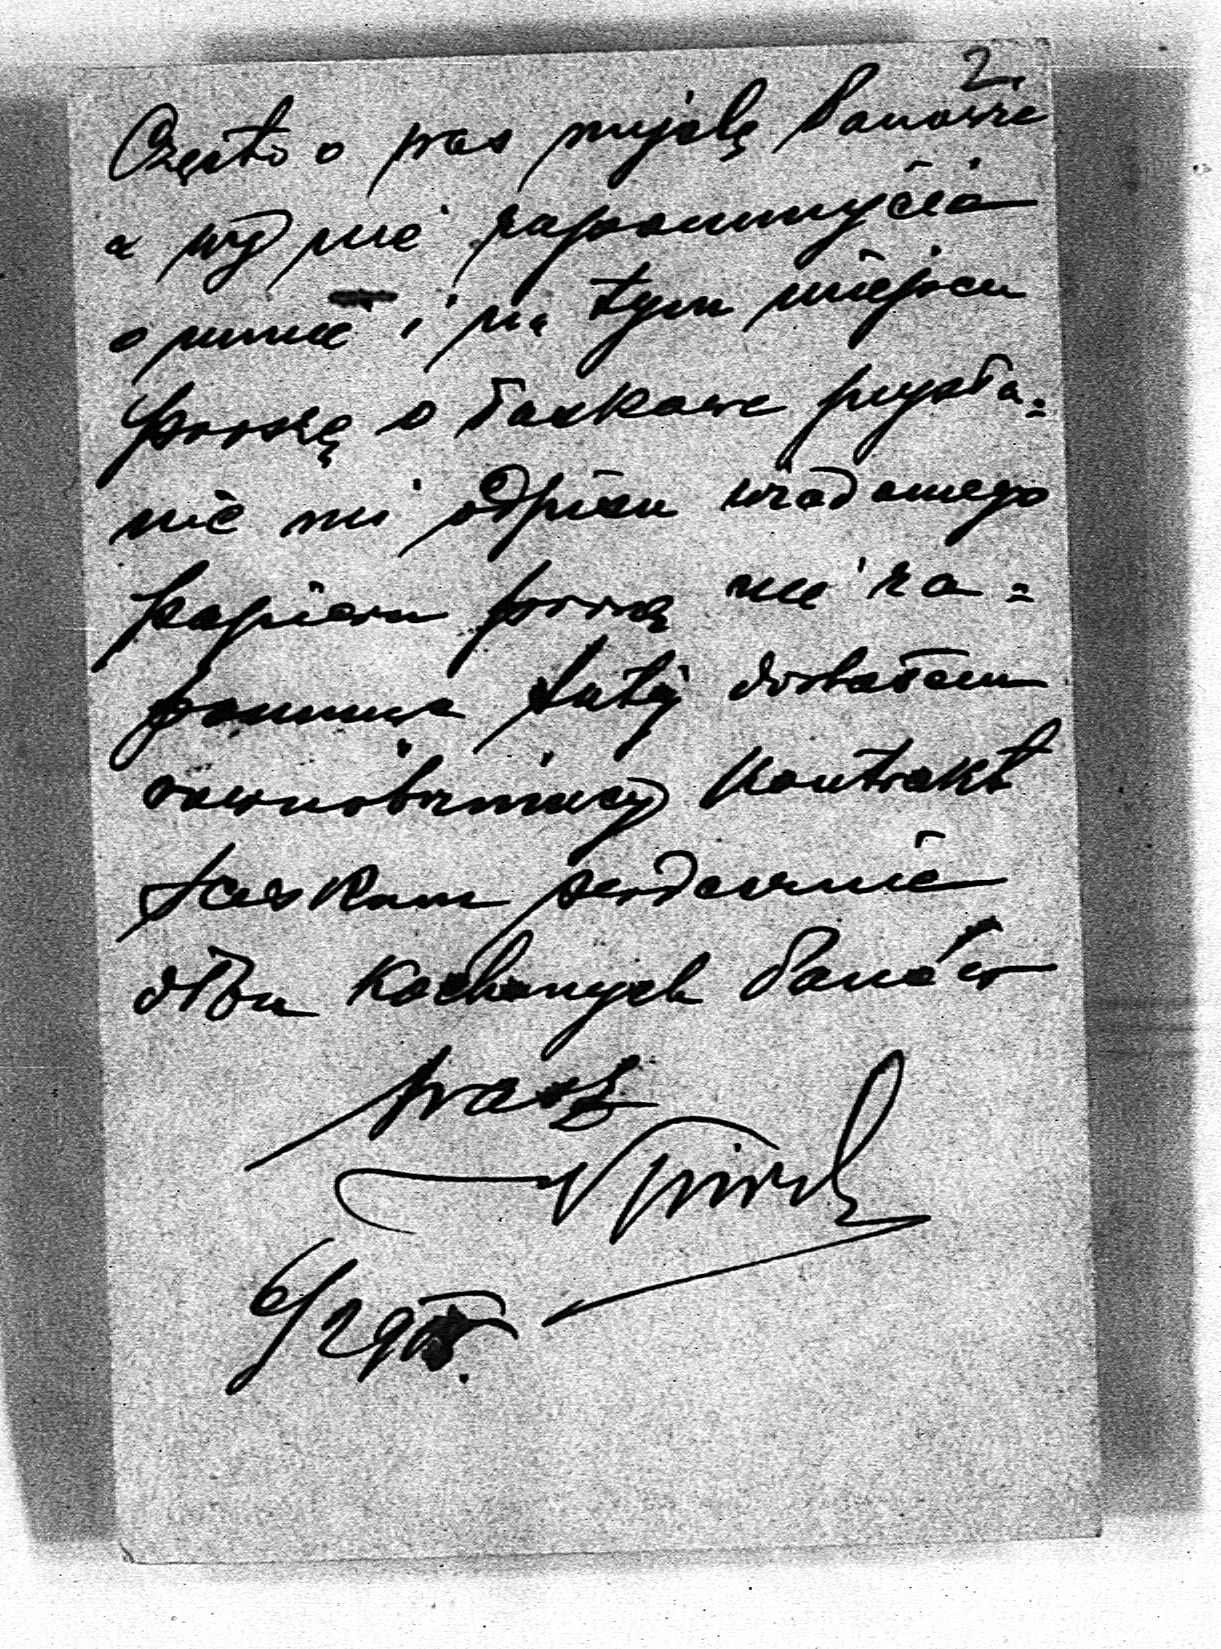 2.
Często o was myślę Panowie
a wy nie zapomnijcie
o mnie i na tym miejscu
proszę o łaskawe przysła=
nie mi odpisu wiadomego
papieru proszę nie za=
pomnieć tutaj dostałem
równobrzmiący Kontrakt
ściskam serdecznie
obu Kochanych Panów
wasz